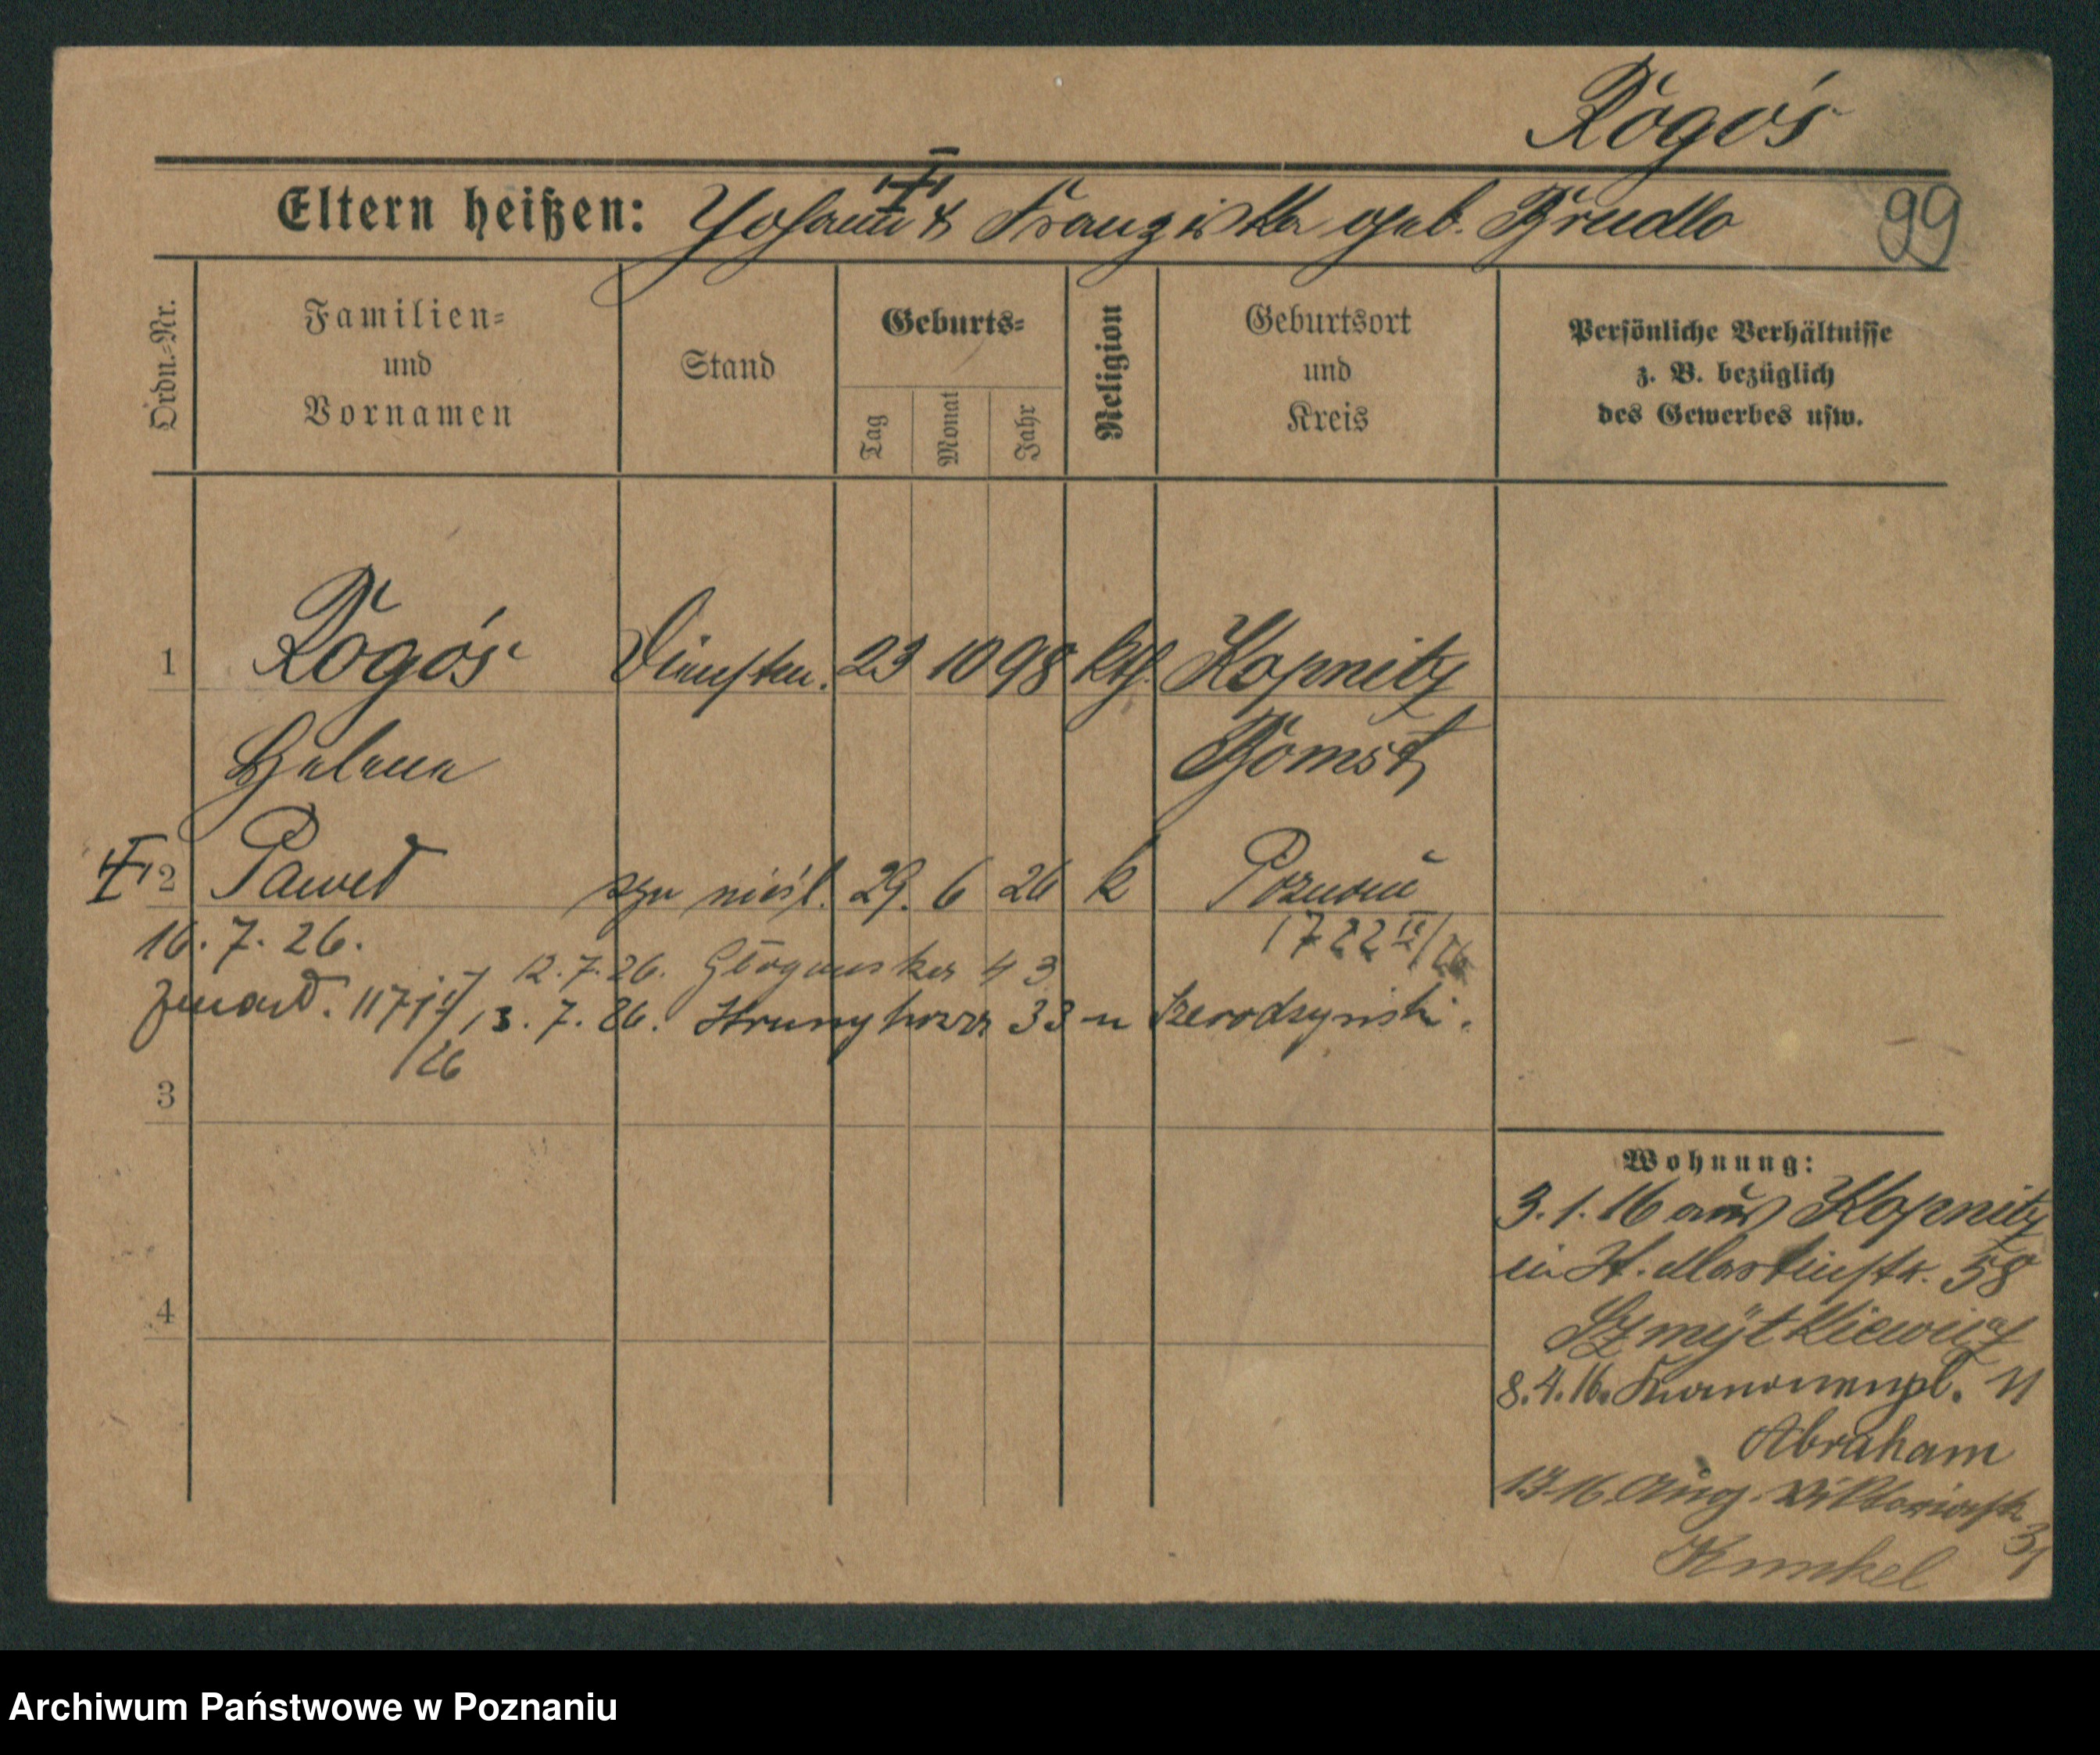 Rogoś
Eltern heißen: Johann & Franziska geb. Brudlo
99
Ordn.-Nr.
Familien-
und
Vornamen
Stand
Geburts-
Tag
Monat
Jahr
Religion
Geburtsort
und
Kreis
Persönliche Verhältnisse
z. B. bezüglich
des Gewerbes usw.
1 Rogoś Dienstm. 23 10 98 kth. Kopnitz
Helena Bomst
2 Paweł syn nieśl. 29. 6 26 k Poznań
16.7.26. 1722 II/26
12.7.26. Głogowska 43
zmarł. 117
/26
13.7.26. 33 u
3
4
Wohnung:
3.1.16 aus Kopnitz
in St. Martinstr. 58
Szmytkiewicz
8.4.16. Kanonenpl. 11
Abraham
Aug. Viktoriastr.
31
Kunkel
Archiwum Państwowe w Poznaniu